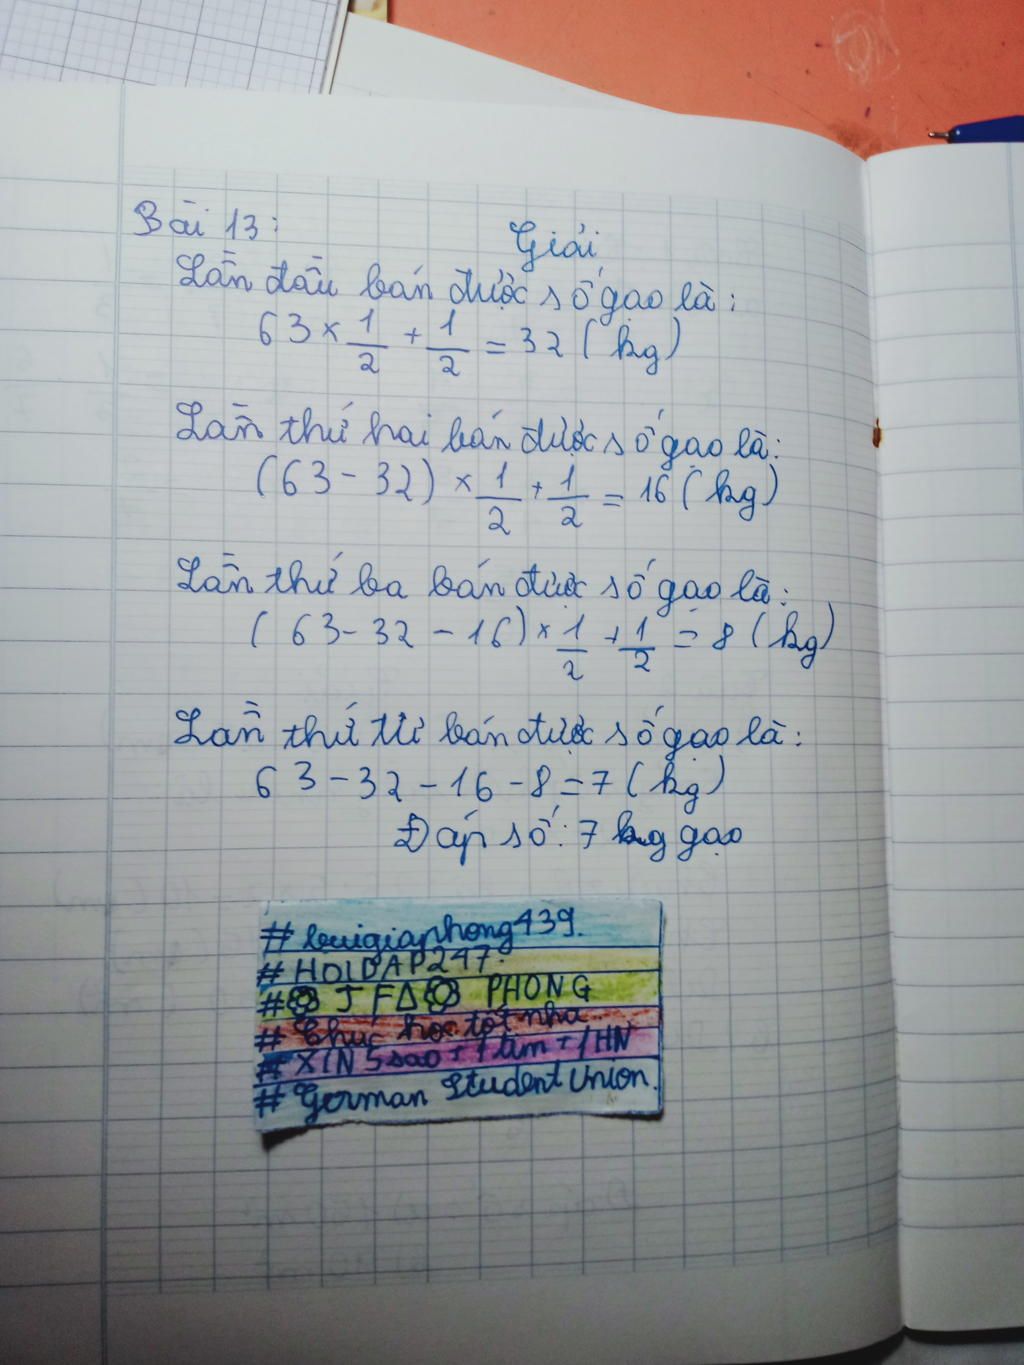 Bài 13:
Giải
Lần đầu bán được số gạo là:
63 × 1/2 + 1/2 = 32 (kg)
Lần thứ hai bán được số gạo là:
(63 - 32) × 1/2 + 1/2 = 16 (kg)
Lần thứ ba bán được số gạo là:
(63 - 32 - 16) × 1/2 + 1/2 = 8 (kg)
Lần thứ tư bán được số gạo là:
63 - 32 - 16 - 8 = 7 (kg)
Đáp số: 7 kg gạo
# buigiaphong439.
# HOIDAP247.
# J F Δ PHONG
# Chúc học tốt nha.
# XIN 5 sao + 1 tim + 1 HN
# German Student Union.